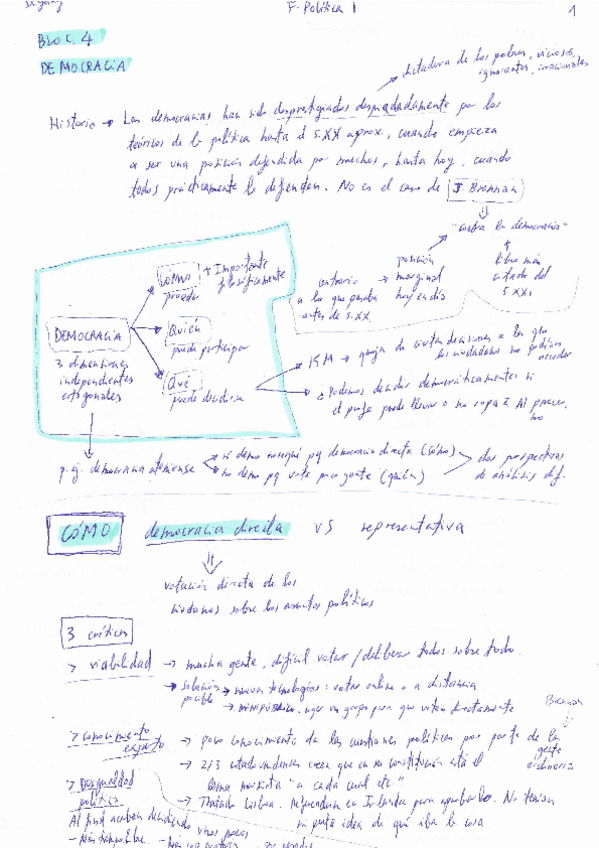 F. Política 1
1
BLOC. 4
DEMOCRACIA
dictadura de los pobres, viciosos,
ignorantes, irracionales
Historia → Las democracias han sido desprestigiadas despiadadamente por los
teóricos de la política hasta el s.XX aprox., cuando empieza
a ser una posición defendida por muchos, hasta hoy, cuando
todos prácticamente la defienden. No es el caso de J Brennan
"contra la democracia"
libro más
citado del
s.XXI
posición
marginal
hoy en día
contrario
a lo que pasaba
antes de s.XX
DEMOCRACIA
3 dimensiones
independientes
ortogonales
CÓMO + Importante
filosóficamente
proceder
Quién
puede participar
Qué
puede decidirse
KM → queja de ciertas decisiones a las que
los ciudadanos no podían
acceder
¿Podemos decidir democráticamente si
el profe puede llevar o no ropa? Al parecer,
no
p.ej. democracia ateniense
sí demo pq democracia directa (cómo)
no demo pq vota poca gente (quién)
dos perspectivas
de análisis dif.
CÓMO democracia directa vs representativa
votación directa de los
ciudadanos sobre los asuntos políticos
3 críticas
> viabilidad → mucha gente, difícil votar/deliberar todos sobre todo.
→ solución posible → nuevas tecnologías: votar online o a distancia
→ coger un grupo para que voten directamente
Brennan
> conocimiento
experto → poco conocimiento de las cuestiones políticas por parte de la
gente
ordinaria
→ 2/3 estadounidenses creen que en su constitución está el
lema marxista "a cada cual etc."
→ Tratado Lisboa. Referéndum en Irlanda para aprobarlo. No tenían
ni puta idea de qué iba la cosa.
> Desigualdad
política
Al final acaban decidiendo unos pocos
- Más tiempo libre.